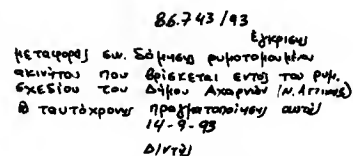 86.743/93
Εγκρισις
μεταφοράς συν. δόμησης ρυμοτομουμένου
ακινήτου που βρίσκεται εντός του ρυμ.
σχεδίου του Δήμου Αχαρνών (Ν. Αττικής)
& ταυτόχρονης πραγματοποίησης αυτού
14-9-93
Δ/ντής